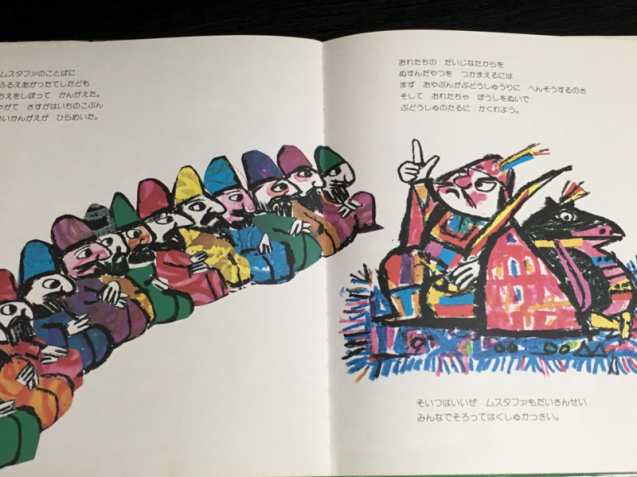 ムスタファのことばに
ふるえあがったてしたども
ちえをしぼって かんがえた。
やがて さすがはいちのこぶん
いいかんがえが ひらめいた。
おれたちの だいじなたからを
ぬすんだやつを つかまえるには
まず おやぶんがぶどうしゅうりに へんそうするのさ
そして おれたちゃ ぼうしをぬいで
ぶどうしゅのたるに かくれよう。
そいつはいいぜ ムスタファもだいさんせい
みんなでそろってはくしゅかっさい。